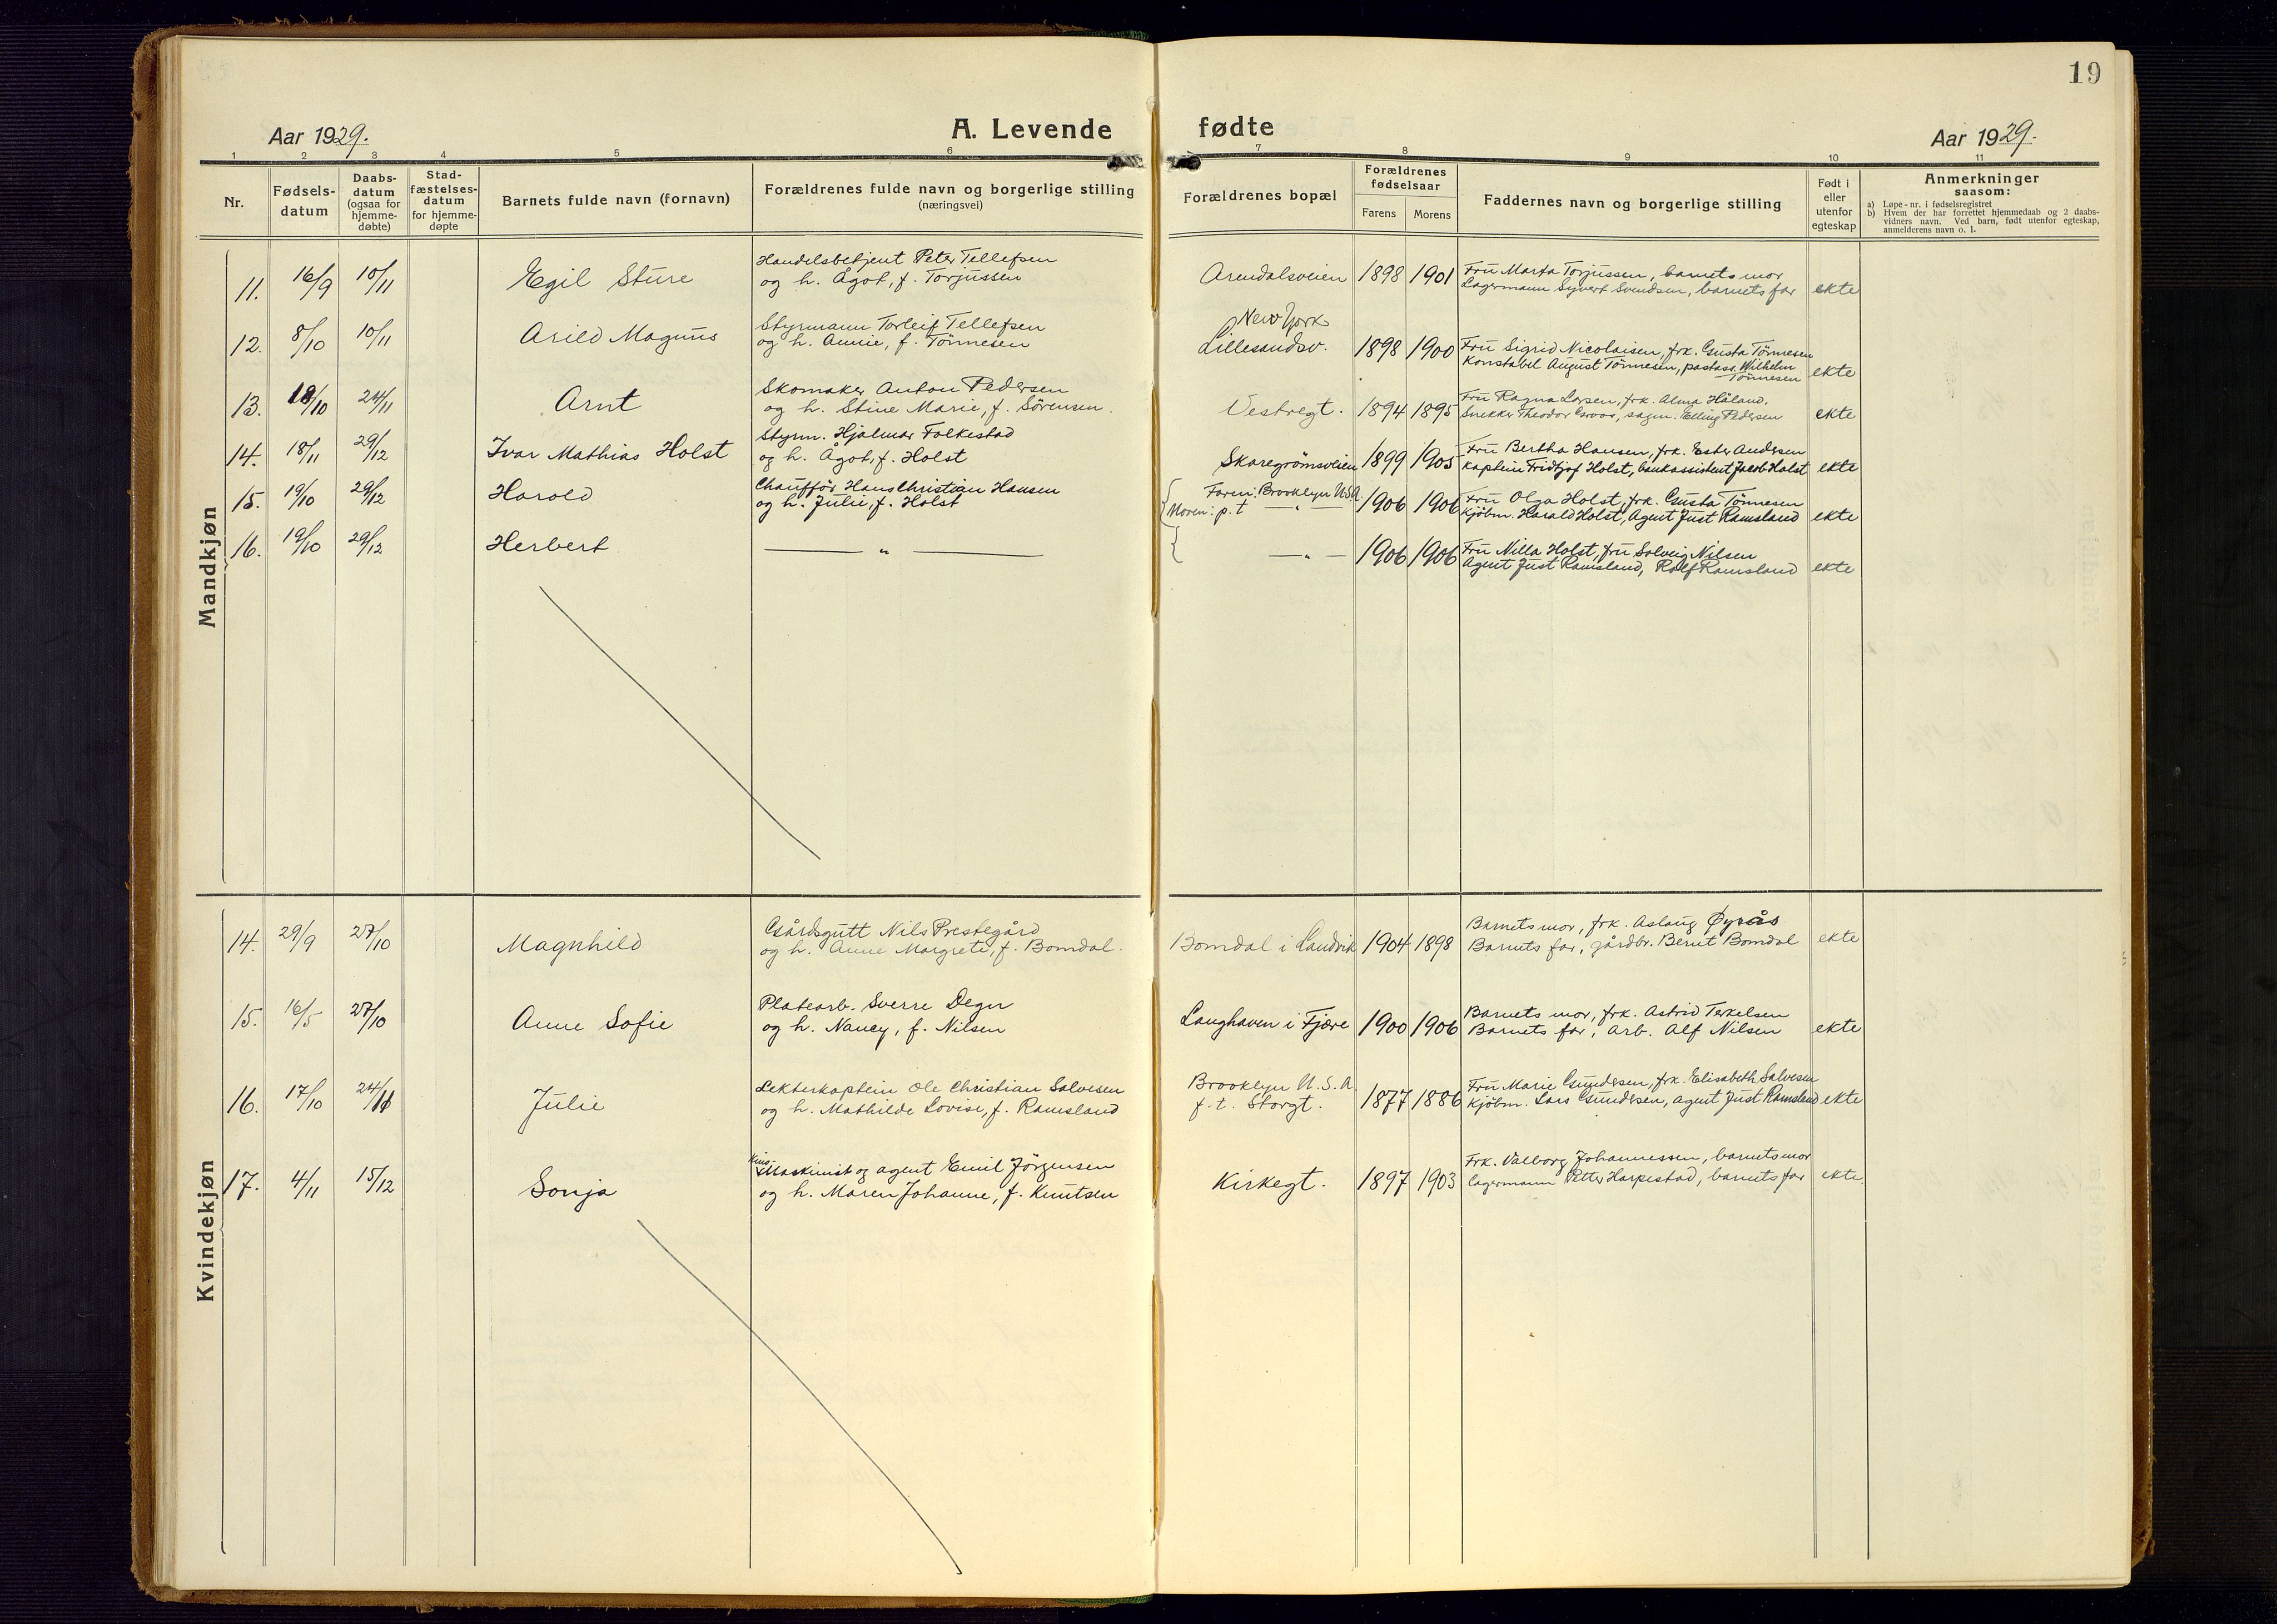 19
Aar 1929.
A. Levende fødte
Aar 1929.
1 2 3 4 5 6 7 8 9 10 11
Nr.
Fødsels-
datum
Daabs-
datum
(ogsaa for
hjemme-
døbte)
Stad-
fæstelses-
datum
for hjemme-
døpte
Barnets fulde navn (fornavn)
Forældrenes fulde navn og borgerlige stilling
(næringsvei)
Forældrenes bopæl
Forældrenes
fødselsaar
Farens Morens
Faddernes navn og borgerlige stilling
Født i
eller
utenfor
egteskap
Anmerkninger
saasom:
a) Løpe-nr. i fødselsregistret
b) Hvem der har forrettet hjemmedaab og 2 daabs-
vidners navn. Ved barn, født utenfor egteskap,
anmelderens navn o. l.
Mandkjøn
11. 16/9 10/11 Egil Sture
Handelsbetjent Peter Tellefsen
og h. Ågot, f. Torjussen
Arendalsveien 1898 1901
Fru Marta Torjussen, barnets mor
Lagermann Syvert Svendsen, barnets far
ekte
12. 8/10 10/11 Arild Magnus
Styrmann Torleif Tellefsen
og h. Annie, f. Tönnesen
New York
Lillesandsv. 1898 1900
Fru Sigrid Nicolaisen, frk. Gusta Tönnesen
Konstabel August Tönnesen, postass. Wilhelm
Tönnesen
ekte
13. 18/10 24/11 Arnt
Skomaker Anton Pedersen
og h. Stine Marie, f. Sörensen.
Vestregt. 1894 1895
Fru Ragna Larsen, frk. Alma Håland,
Snekker Theodor Groos, sagm. Elling Pedersen
ekte
14. 18/11 29/12 Ivar Mathias Holst
Styrm. Hjalmar Folkestad
og h. Ågot, f. Holst
Skaregrömsveien 1899 1905
Fru Bertha Hansen, frk. Ester Andersen
Kaptein Fridtjof Holst, bankassistent Jacob Holst
ekte
15. 19/10 29/12 Harold
Chaufför Hans Christian Hansen
og h. Julie, f. Holst
Faren: Brooklyn U.S.A.
Moren: p. t — " — 1906 1906
Fru Olga Holst, frk. Gusta Tönnesen
Kjöbm. Harald Holst, Agent Just Ramsland
ekte
16. 19/10 29/12 Herbert
— " —
— " — 1906 1906
Fru Nilla Holst, fru Solveig Nilsen
Agent Just Ramsland, Rolf Ramsland
ekte
Kvindekjøn
14. 29/9 27/10 Magnhild
Gårdsgutt Nils Prestegård
og h. Anne Margrete, f. Bomdal.
Bomdal i Landvik 1904 1898
Barnets mor, frk. Aslaug Øyrås
Barnets far, gårdbr. Bernt Bomdal
ekte
15. 16/5 27/10 Anne Sofie
Platearb. Sverre Degn
og h. Nancy, f. Nilsen
Langhaven i Fjære 1900 1906
Barnets mor, frk. Astrid Terkelsen
Barnets far, arb. Alf Nilsen
ekte
16. 17/10 24/11 Julie
Lekterkaptein Ole Christian Salvesen
og h. Mathilde Lovise, f. Ramsland
Brooklyn U.S.A.
f. t. Storgt. 1877 1886
Fru Marie Gundersen, frk. Elisabeth Salvesen
Kjöbm. Lars Gundersen, agent Just Ramsland
ekte
17. 4/11 15/12 Sonja
Kino-
Maskinist og agent Emil Jörgensen
og h. Maren Johanne, f. Knutsen
Kirkegt. 1897 1903
Frk. Valborg Johannessen, barnets mor
Lagermann Petter Harpestad, barnets far
ekte